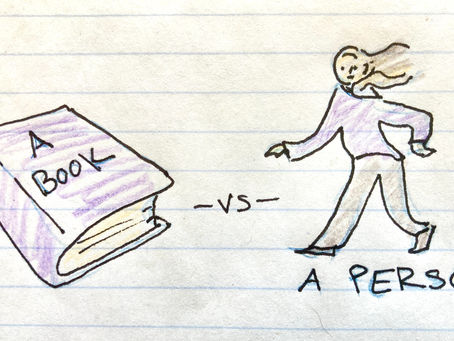 A
BOOK
-VS-
A PERSO